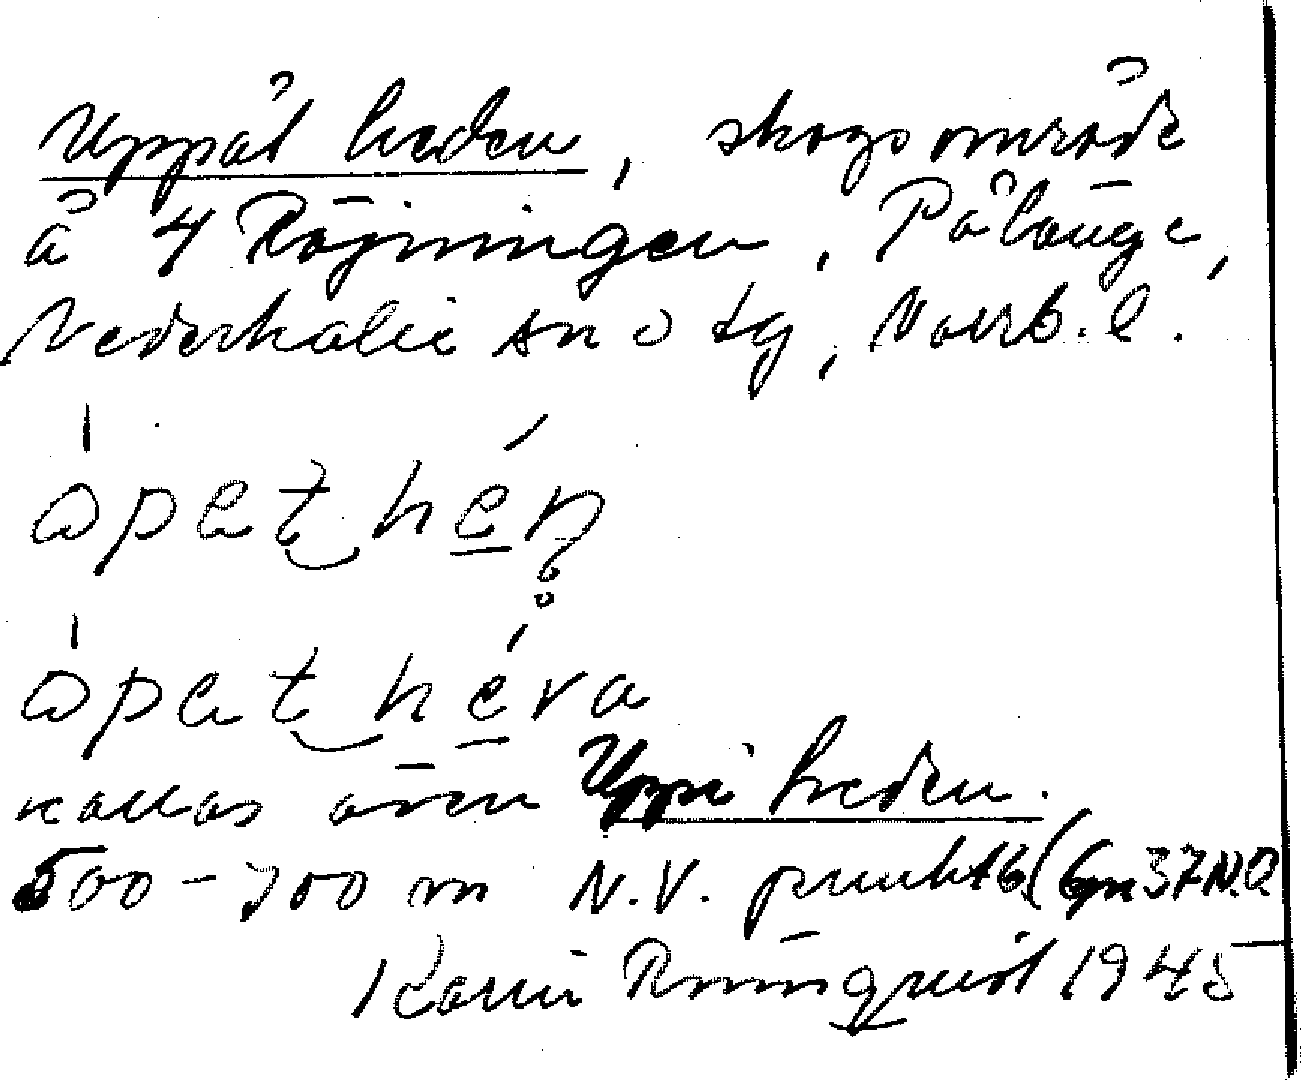 Uppåt heden, skogsområde
å 4 Röjningen, Pålänge,
Nederkalix sn o tg, Norrb. l.
åpat hén
åpat héva
kallas även Uppi heden.
500-700 m N.V. punkt 6 (Gpn 37 N.O
Karin Rönnqvist 1945